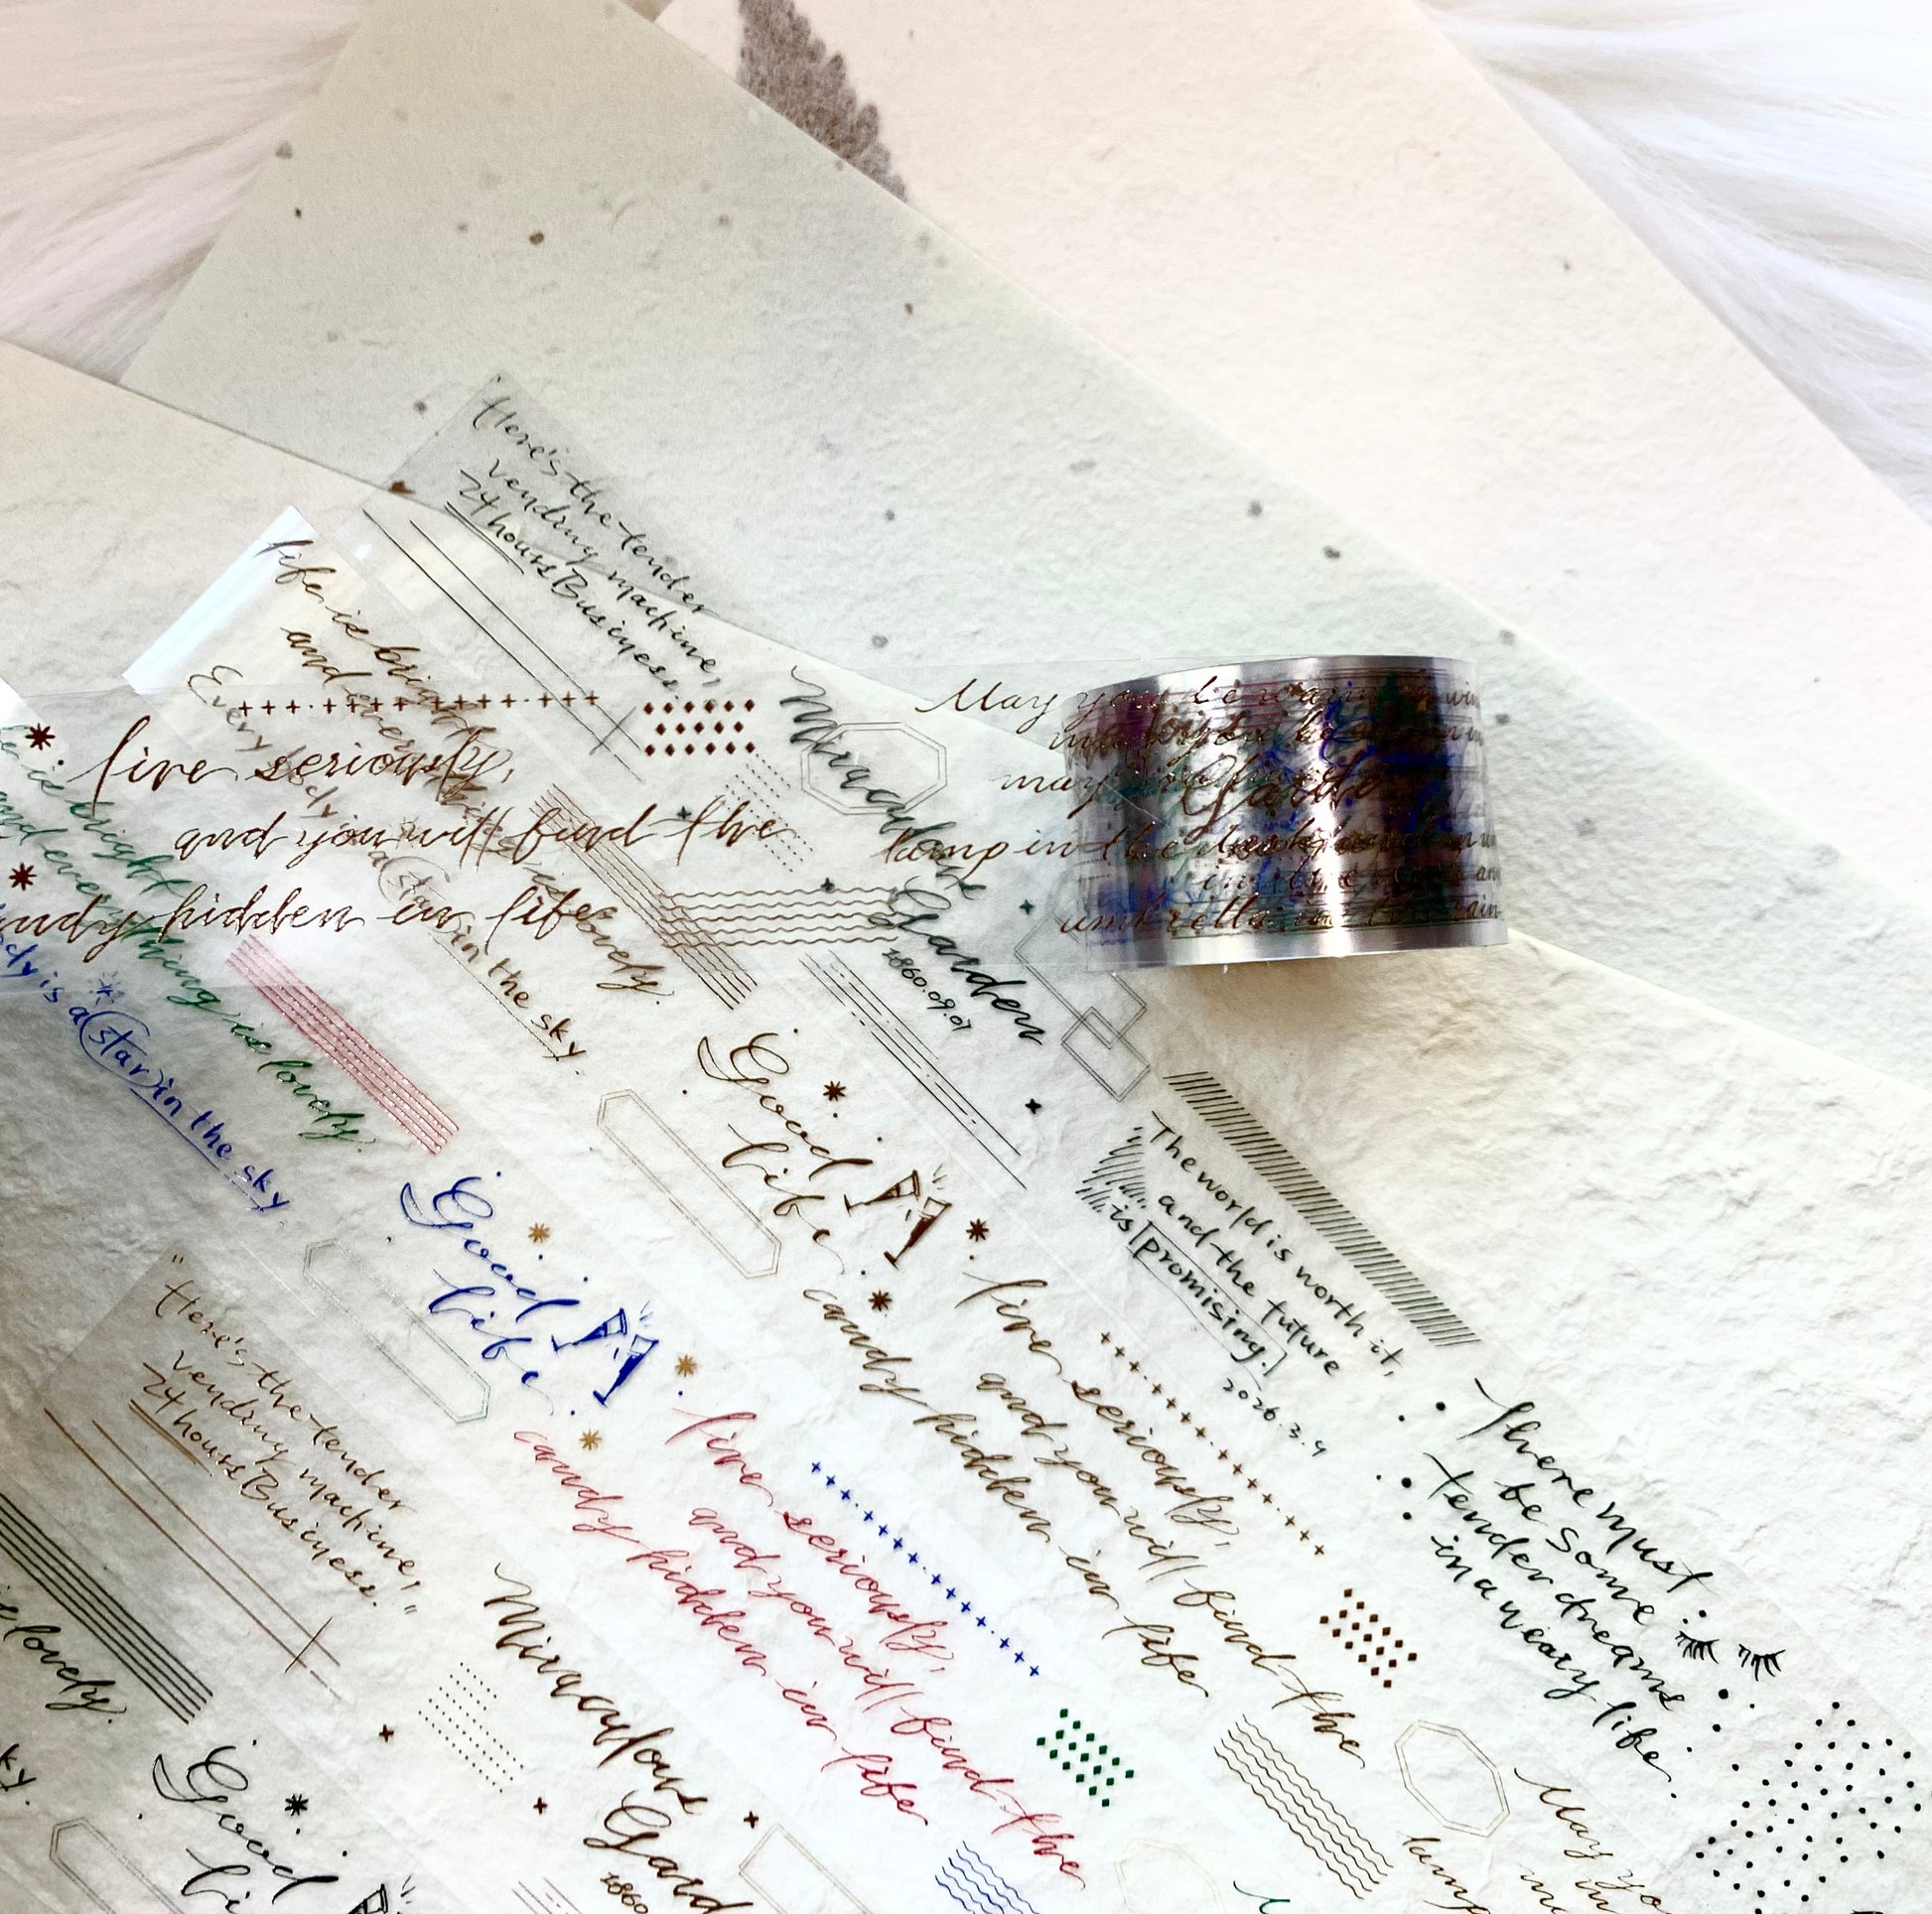 Here's the tender
vending machine,
24 hours Business.
life is bright
and everything
is lovely.
Every
a star in the sky.
live seriously,
and you will find the
candy hidden in life
Miraculous
Garden
1860.09.07
May you be warm in
may
lamp in the
umbrella in the rain
is bright
and everything is lovely.
is a star in the sky.
Good
life
The world is worth it,
and the future
is promising.
2026.3.4
Good
life
live seriously,
and you will find the
candy hidden in life
There must
be some
tender dreams
in a weary life.
"Here's the tender
vending machine,
24 hours Business."
live seriously,
and you will find the
candy hidden in life
lovely.
sky.
Miraculous
Gard
1860
Good
li
May yo
lamp